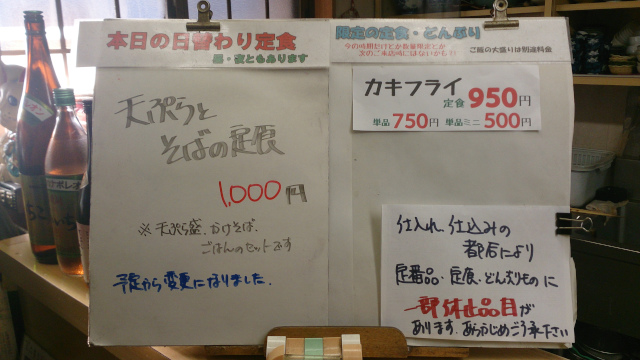 本日の日替わり定食
昼・夜ともあります
天ぷらと
そばの定食
1,000円
※天ぷら盛、かけそば、
ごはんのセットです
予定から変更になりました。
限定の定食・どんぶり
今の時期だけとか数量限定とか
次のご来店時にはないかも!!
ご飯の大盛りは別途料金
カキフライ
定食 950円
単品 750円 単品ミニ 500円
仕入れ、仕込みの
都合により
定番品・定食・どんぶりものに
一部休止品目が
あります。あらかじめご了承下さい